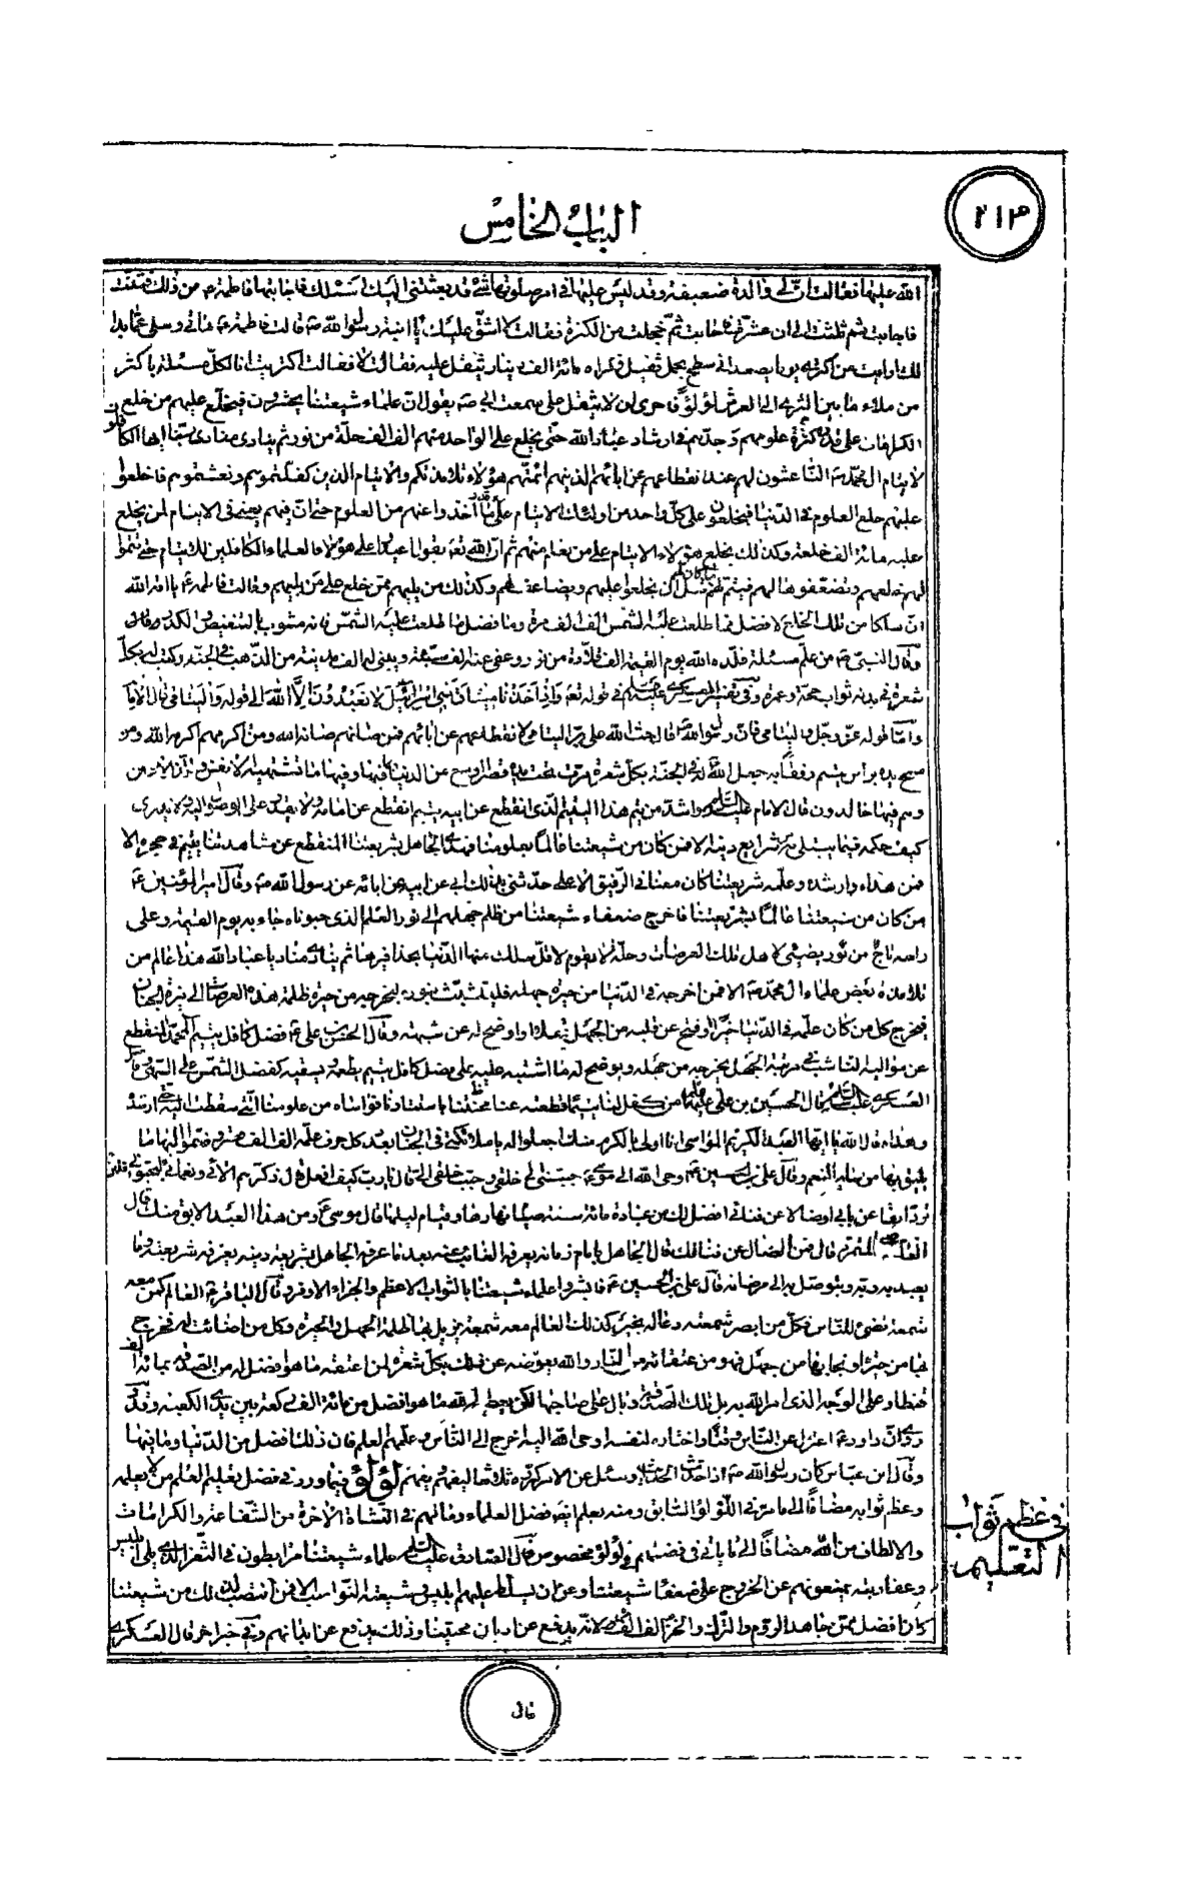 ٢١٣
الباب الخامس
الله عليها فقالت ان لي والدة ضعيفة وقد لبس عليها في امر صلوتها شئ وقد بعثتني اليك اسئلك فاجابتها فاطمة ع من ذلك فثنت
فاجابت ثم ثلثت الى ان عشرت فاجابت ثم خجلت من الكثرة فقالت لا اشق عليك يا ابنة رسول الله ص قالت فاطمة ع هاتي وسلي عما بدا
لك ارايت من اكترى يوما يصعد الى سطح بحمل ثقيل وكراه مائة الف دينار يثقل عليه فقالت لا فقالت اكتريت انا لكل مسئلة باكثر
من ملاء ما بين الثرى الى العرش لؤلؤا فاحرى ان لا يثقل علي سمعت ابي ص يقول ان علماء شيعتنا يحشرون فيخلع عليهم من خلع
الكرامات على قدر كثرة علومهم وجدهم في ارشاد عباد الله حتى يخلع على الواحد منهم الف الف حلة من نور ثم ينادي منادي ربنا ايها الكافلون
لايتام ال محمد ص الناعشون لهم عند انقطاعهم عن ابائهم الذين هم ائمتهم هؤلاء تلامذتكم والايتام الذين كفلتموهم ونعشتموهم فاخلعوا
عليهم خلع العلوم في الدنيا فيخلعون على كل واحد من اولئك الايتام على قدر ما اخذوا عنهم من العلوم حتى ان فيهم يعني في الايتام لمن يخلع
عليه مائة الف خلعة وكذلك يخلع هؤلاء الايتام على من تعلم منهم ثم ان الله تع يقول اعيدوا على هؤلاء العلماء الكافلين للايتام حتى تتموا
لهم خلعهم وتضعفوها لهم فيتم لهم ما كان لهم قبل ان يخلعوا عليهم ويضاعف لهم وكذلك من يليهم ممن خلع على من يليهم وقالت فاطمة ع يا امة الله
ان سلكا من تلك الخلع لافضل مما طلعت عليه الشمس الف الف مرة وما فضل ما طلعت عليه الشمس فانه مشوب بالتنغيص والكدر
وقال النبي ص من علم مسئلة قلده الله يوم القيمة الف قلادة من نور وغفر عنه الف سيئة وبنى له الف مدينة من الذهب في الجنة وكتب له بكل
شعرة في بدنه ثواب حجة وعمرة وفي تفسير العسكري عليه السلم في قوله تع واذ اخذنا ميثاق بني اسرائيل لا تعبدون الا الله الى قوله واليتامى قال الامام
واما قوله عز وجل واليتامى فان رسول الله ص قال حث الله على بر اليتامى لانقطاعهم عن ابائهم فمن صانهم صانه الله ومن اكرمهم اكرمه الله ومن
مسح يده براس يتيم رفقا به جعل الله له في الجنة بكل شعرة مرت تحت يده قصرا اوسع من الدنيا بما فيها وفيها ما تشتهيه الانفس وتلذ الاعين
وهم فيها خالدون قال الامام عليه السلم واشد من يتم هذا اليتيم الذي انقطع عن ابيه يتيم انقطع عن امامه ولا يقدر على الوصول اليه ولا يدري
كيف حكمه فيما يبتلى به من شرايع دينه الا فمن كان من شيعتنا عالما بعلومنا فهدى الجاهل بشريعتنا المنقطع عن مشاهدتنا يتيم في حجره الا
فمن هداه وارشده وعلمه شريعتنا كان معنا في الرفيق الاعلى حدثني بذلك ابي عن ابيه عن ابائه عن رسول الله ص وقال امير المؤمنين ع
من كان من شيعتنا عالما بشريعتنا فاخرج ضعفاء شيعتنا من ظلم جهلهم الى نور العلم الذي حبوناه جاء به يوم القيمة وعلى
راسه تاج من نور يضئ لاهل تلك العرصات وحلة لا يقوم لاقل سلك منها الدنيا بحذافيرها ثم ينادي مناد يا عباد الله هذا عالم من
تلامذة بعض علماء ال محمد ص الا فمن اخرجه في الدنيا من حيرة جهله فليتشبث بنوره ليخرجه من حيرة ظلمة هذه العرصات الى نزه الجنان
فيخرج كل من كان علمه في الدنيا خيرا او فتح عن قلبه من الجهل قفلا او اوضح له عن شبهة وقال الحسن بن علي ع فضل كافل يتيم ال محمد المنقطع
عن مواليه الناشب في مرتبة الجهل يخرجه من جهله ويوضح له ما اشتبه عليه على فضل كافل يتيم يطعمه ويسقيه كفضل الشمس على السهى وقال
العسكري عليه السلم قال الحسين بن علي عليهما من كفل لنا يتيما قطعته عنا محنتنا باستتارنا فواساه من علومنا التي سقطت اليه حتى ارشده
وهداه قال الله يا ايها العبد الكريم المواسي انا اولى بالكرم منك اجعلوا له يا ملائكتي في الجنان بعدد كل حرف علمه الف الف قصر وضموا اليها ما
يليق بها من ساير النعم وقال علي بن الحسين ع اوحى الله الى موسى ع حببني الى خلقي وحبب خلقي الي قال يا رب كيف افعل قال ذكرهم الائي ونعمائي ليحبوني فلئن
ترد ابقا عن بابي او ضالا عن فنائي افضل لك من عبادة مائة سنة صيام نهارها وقيام ليلها قال موسى ع ومن هذا العبد الابق منك قال
العاصي المتمرد قال فمن الضال عن فنائك قال الجاهل بامام زمانه يعرفه الغائب عنه بعد ما عرفه الجاهل بشريعة دينه يعرفه شريعته وما
يعبد به ربه ويتوصل به الى مرضاته قال علي بن الحسين ع فابشروا علماء شيعتنا بالثواب الاعظم والجزاء الاوفر وقال الباقر ع العالم كمن معه
شمعة تضئ للناس فكل من ابصر شمعته دعا له بخير كذلك العالم معه شمعة يزيل بها ظلمة الجهل والحيرة وكل من اضائت له فخرج
بها من حيرة او نجا بها من جهل فهو من عتقائه من النار والله يعوضه عن ذلك بكل شعرة لمن اعتقه ما هو افضل له من الصدقة بمائة الف
قنطار على الوجه الذي امر الله به بل تلك الصدقة وبال على صاحبها لكن يعطيه الله ما هو افضل من مائة الف ركعة بين يدي الكعبة وقد
روي ان داود ع اعتزل عن الناس وقتا واختاره لنفسه اوحى الله اليه اخرج الى الناس وعلمهم العلم فان ذلك افضل من الدنيا وما فيها
وقال ابن عباس كان رسول الله ص اذا حدث الحديث وسئل عن الامر كرره ثلاثا ليفهم ويفهم لؤلؤ فيما ورد في فضل تعليم العلم من لا يعلمه
وعظم ثوابه مضافا الى ما مر في اللؤلؤ السابق ومنه يعلم ايضا فضل العلماء ومالهم في النشاة الاخرة من الشفاعة والكرامات
والالطاف من الله مضافا الى ما ياتي في فضلهم في لؤلؤ مخصوص قال الصادق عليه السلم علماء شيعتنا مرابطون في الثغر الذي يلي ابليس
وعفاريته يمنعونهم عن الخروج على ضعفاء شيعتنا وعن ان يتسلط عليهم ابليس وشيعته النواصب الا فمن انتصب لذلك من شيعتنا
كان افضل ممن جاهد الروم والترك والخزر الف الف مرة لانه يدفع عن اديان محبينا وذلك يدفع عن ابدانهم وفي خبر اخر قال العسكري
في عظم ثواب
التعليم
قال